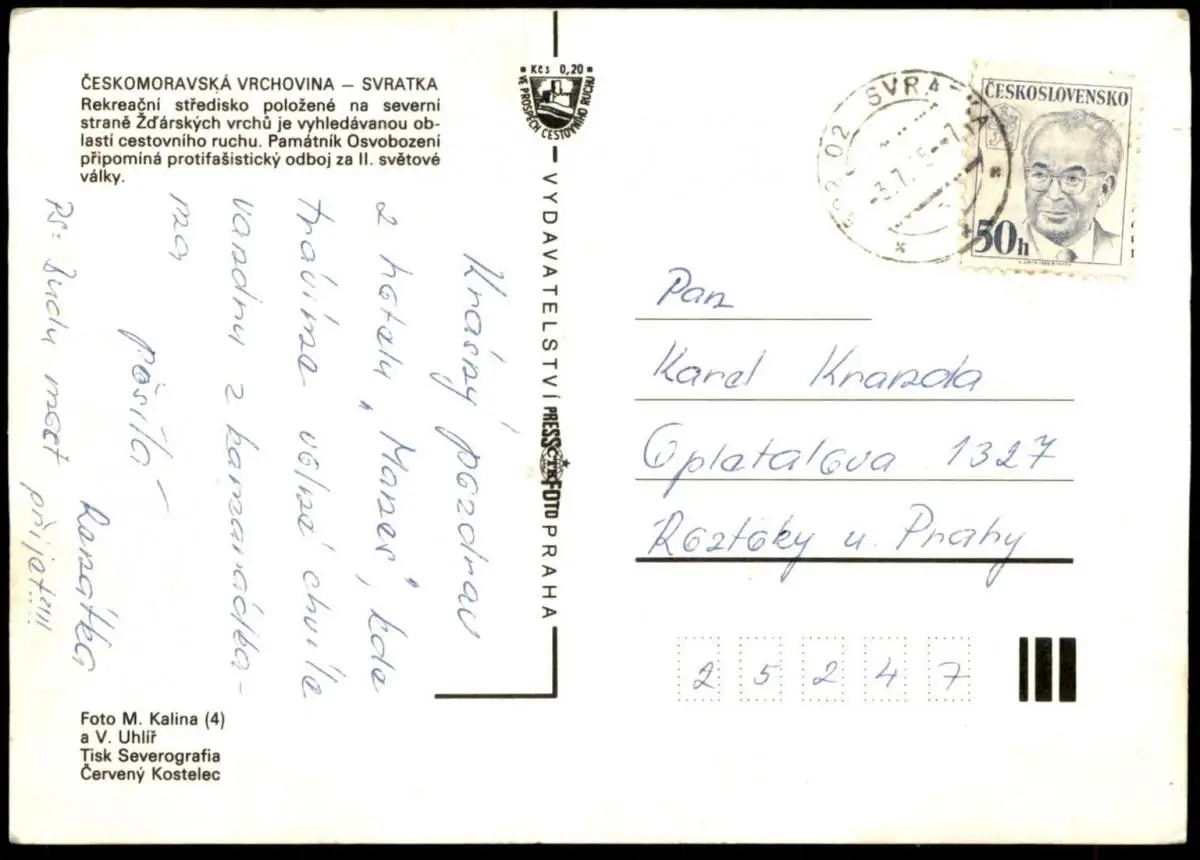 ČESKOMORAVSKÁ VRCHOVINA – SVRATKA
Rekreační středisko položené na severní
straně Žďárských vrchů je vyhledávanou ob-
lastí cestovního ruchu. Památník Osvobození
připomíná protifašistický odboj za II. světové
války.
Krásný pozdrav
z hotelu „Manes", kde
trávíme volné chvíle
vandru z kamarádka-
ma
posílá
Renátka
Ps: Budu moct přijet!!!!
Foto M. Kalina (4)
a V. Uhlíř
Tisk Severografia
Červený Kostelec
Kčs 0,20
VE PROSPĚCH CESTOVNÍHO RUCHU
VYDAVATELSTVÍ PRESSFOTO PRAHA
ČTK
SVRATKA
592 02
-3.7.
ČESKOSLOVENSKO
50h
Pan
Karel Kranda
Opletalova 1327
Roztoky u. Prahy
2 5 2 4 7